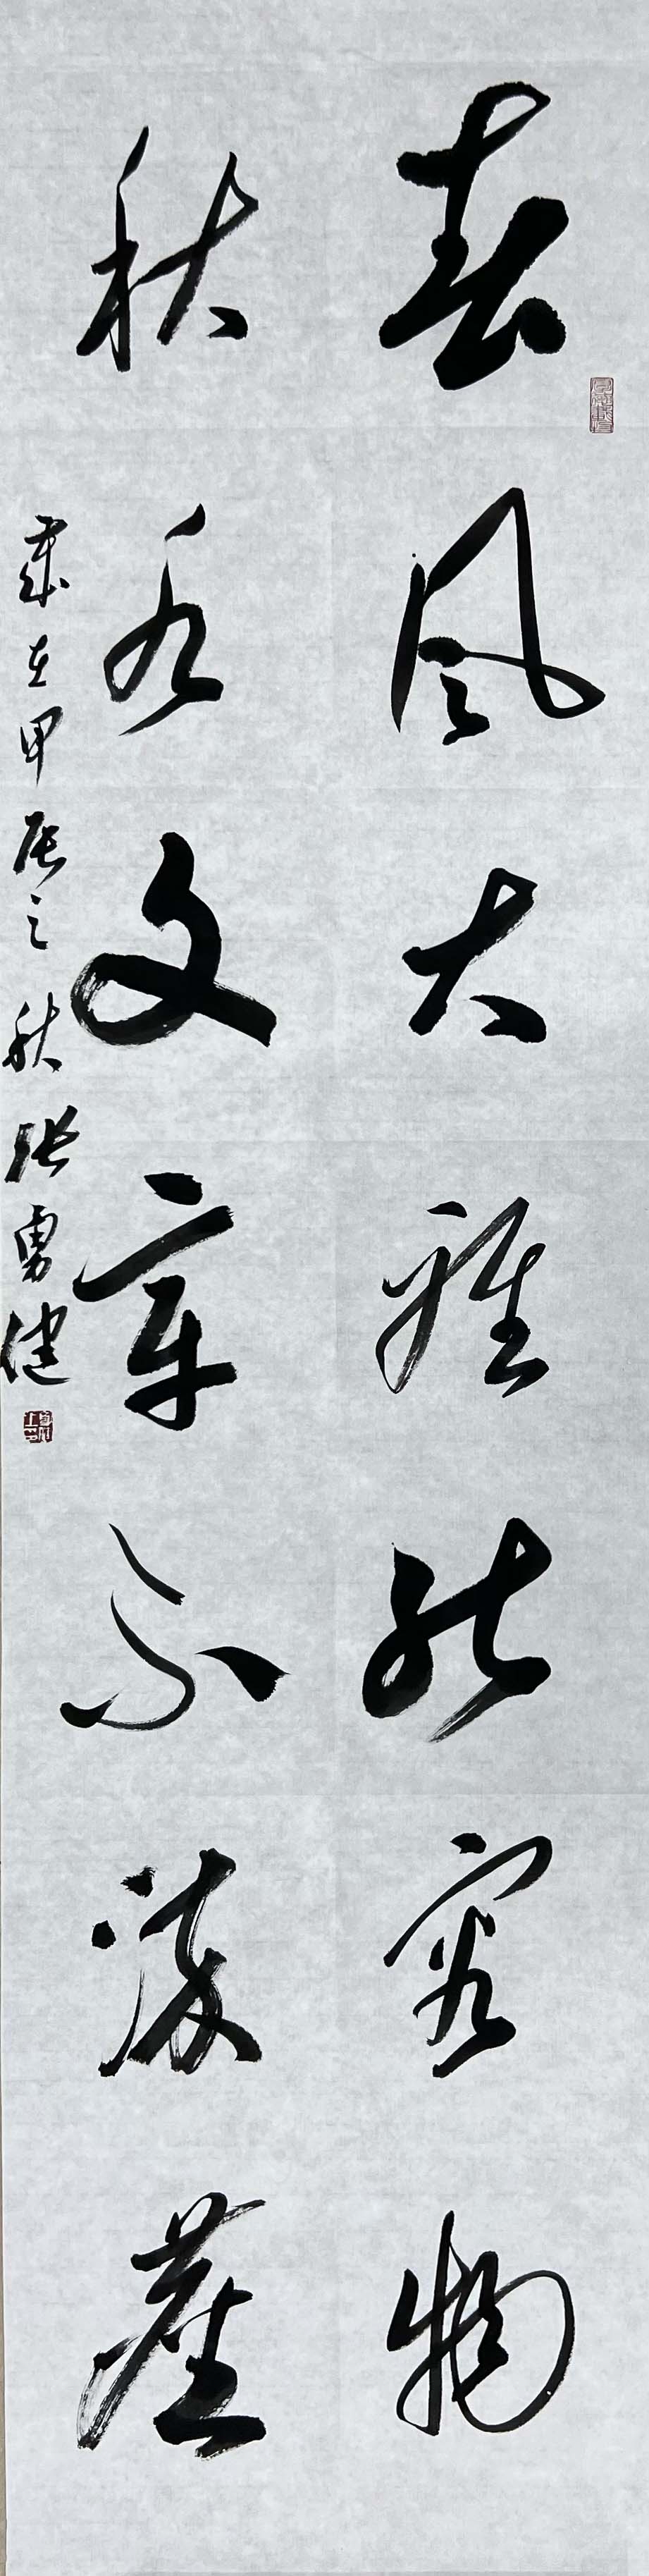 春风大雅能容物
秋水文章不染塵
歲在甲辰之秋 張勇健